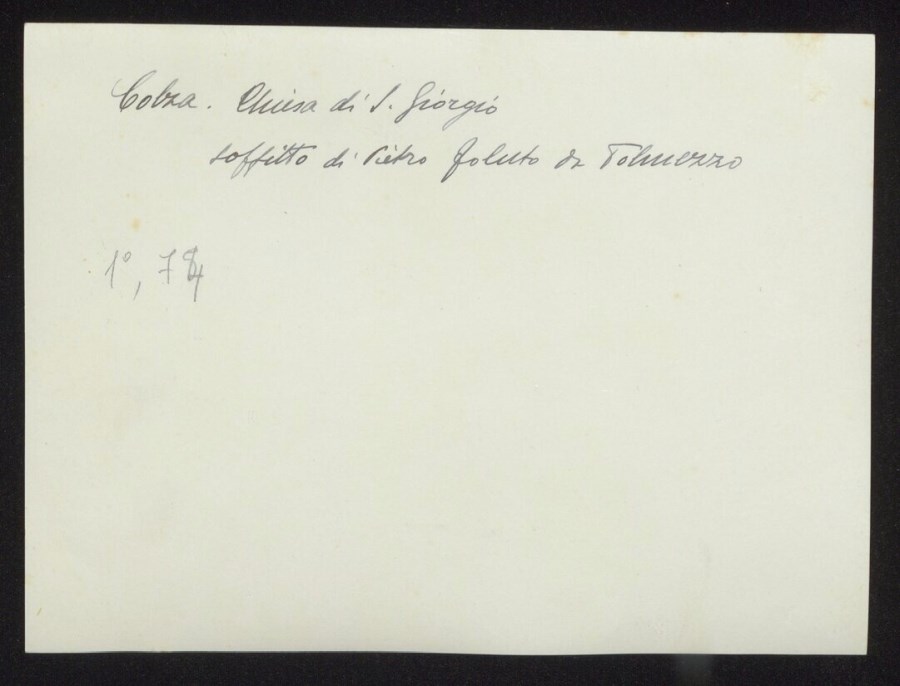 Colza. Chiesa di S. Giorgio
soffitto di Pietro Foluto da Tolmezzo
1°, 784